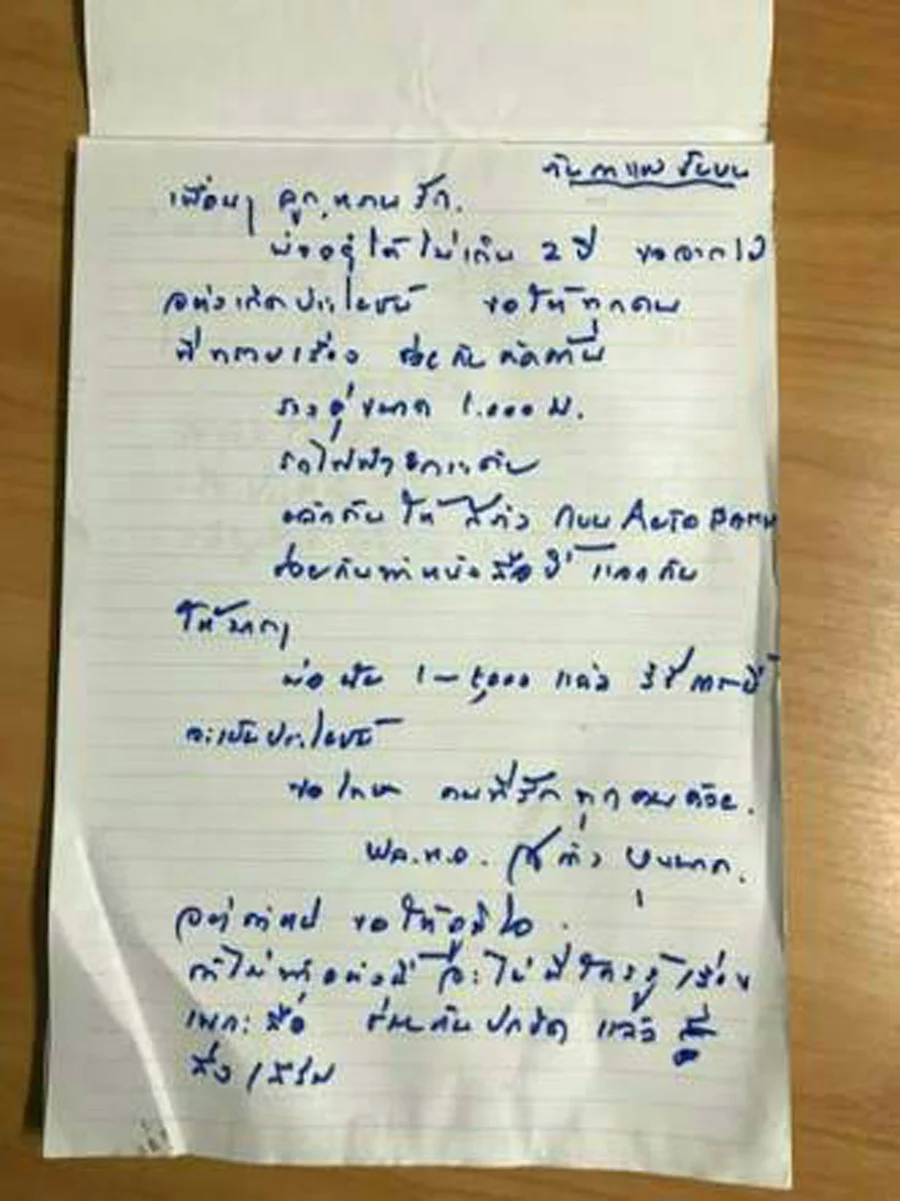 เพื่อนๆ ลูก,หลาน รัก.
พ่ออยู่ได้ไม่เกิน 2 ปี ขอจากไป
อย่างเกิดประโยชน์ ขอให้ทุกคน
ที่ทราบเรื่อง ช่วยกันคัดค้าน
รางคู่ขนาด 1.000 ม.
รถไฟฟ้ายกระดับ
ผลักดันให้ แบบ AUTO
ช่วยกันทำหนังสือ แจกกัน
ให้มากๆ
พ่อ 1-5,000 แล้ว
จะเป็นประโยชน์
ขอโทษ คนที่รักทุกคนด้วย.
พล.ท.อ. บุนนาค.
อย่าตำหนิ ขอให้อภัย.
ถ้าไม่ทำอย่างนี้ จะไม่มีใครรู้เรื่อง
เพราะสื่อ ช่วยกันปกปิด แล้ว
ส่งเสริม